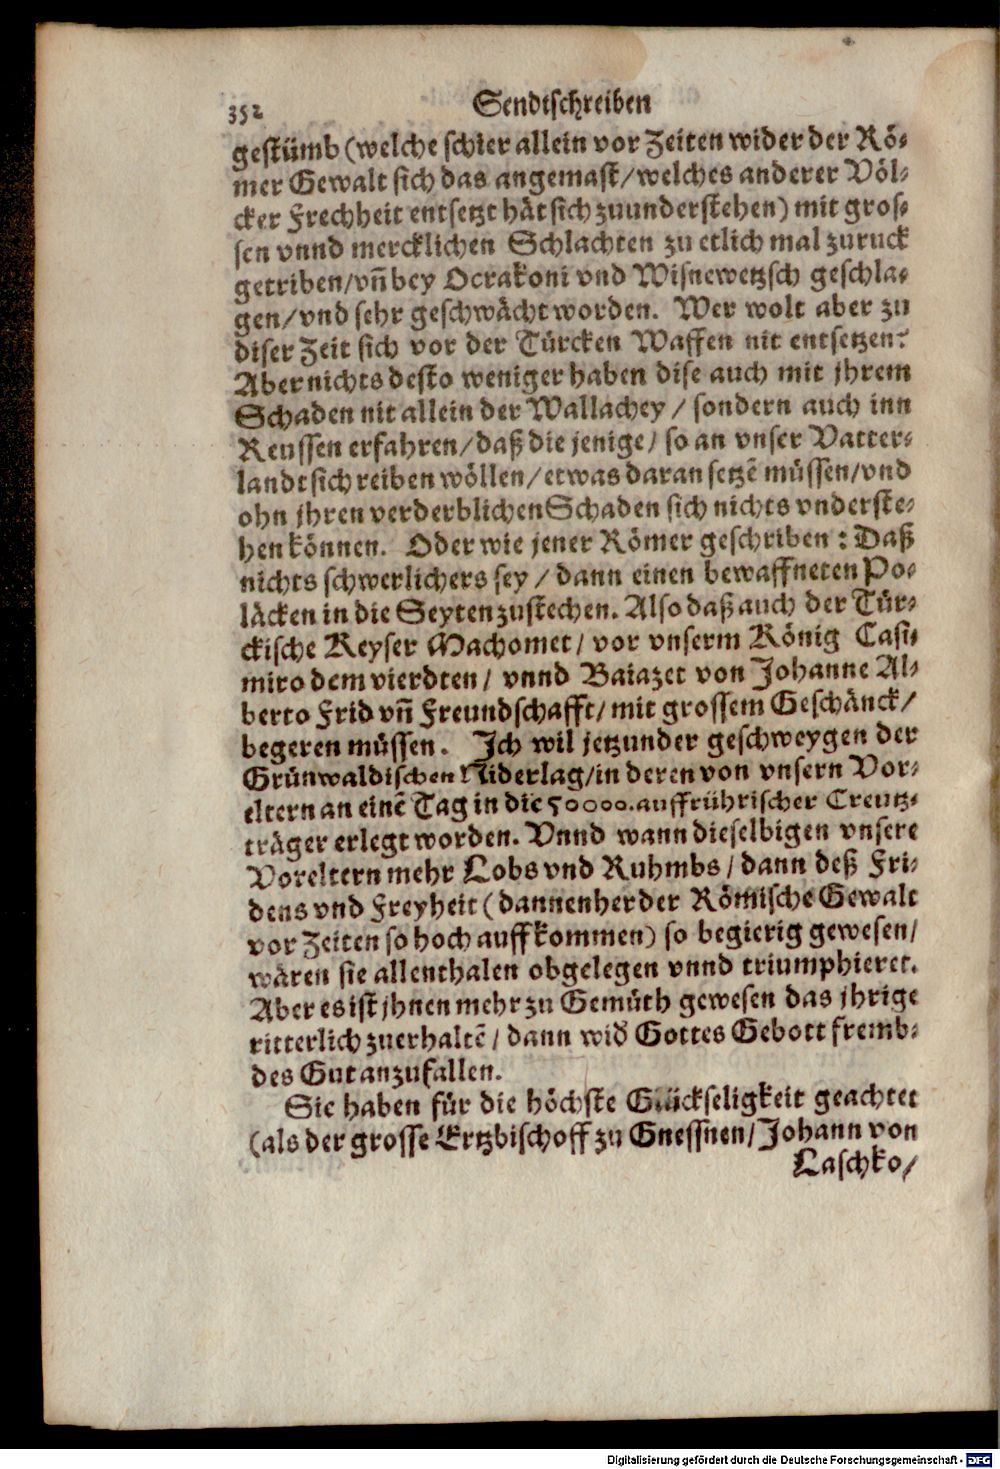 352 Sendtschreiben
gestümb (welche schier allein vor Zeiten wider der Rö-
mer Gewalt sich das angemast/ welches anderer Völ-
cker Frechheit entsetzt hät sich zuunderstehen) mit gros-
sen vnnd mercklichen Schlachten zu etlich mal zuruck
getriben/ vñ bey Ocrakoni vnd Wisnewetzsch geschla-
gen/ vnd sehr geschwächt worden. Wer wolt aber zu
diser Zeit sich vor der Türcken Waffen nit entsetzen?
Aber nichts desto weniger haben dise auch mit jhrem
Schaden nit allein der Wallachey / sondern auch inn
Reussen erfahren/ daß die jenige/ so an vnser Vatter-
landt sich reiben wöllen/ etwas daran setzē müssen/ vnd
ohn jhren verderblichen Schaden sich nichts vnderste-
hen können. Oder wie jener Römer geschriben: Daß
nichts schwerlichers sey / dann einen bewaffneten Po-
läcken in die Seyten zustechen. Also daß auch der Tür-
ckische Keyser Machomet/ vor vnserm König Casi-
miro dem vierdten/ vnnd Baiazet von Johanne Al-
berto Frid vñ Freundschafft/ mit grossem Geschänck/
begeren müssen. Ich wil jetzunder geschweygen der
Grünwaldischen Niderlag/ in deren von vnsern Vor-
eltern an einē Tag in die 50000. auffrührischer Creutz-
träger erlegt worden. Vnnd wann dieselbigen vnsere
Voreltern mehr Lobs vnd Ruhmbs / dann deß Fri-
dens vnd Freyheit (dannenher der Römische Gewalt
vor Zeiten so hoch auffkommen) so begierig gewesen/
wären sie allenthalen obgelegen vnnd triumphieret.
Aber es ist jhnen mehr zu Gemüth gewesen das jhrige
ritterlich zuerhaltē / dann wid Gottes Gebott fremb-
des Gut anzufallen.
Sie haben für die höchste Glückseligkeit geachtet
(als der grosse Ertzbischoff zu Gnessnen/ Johann von
Laschko/
Digitalisierung gefördert durch die Deutsche Forschungsgemeinschaft - DFG